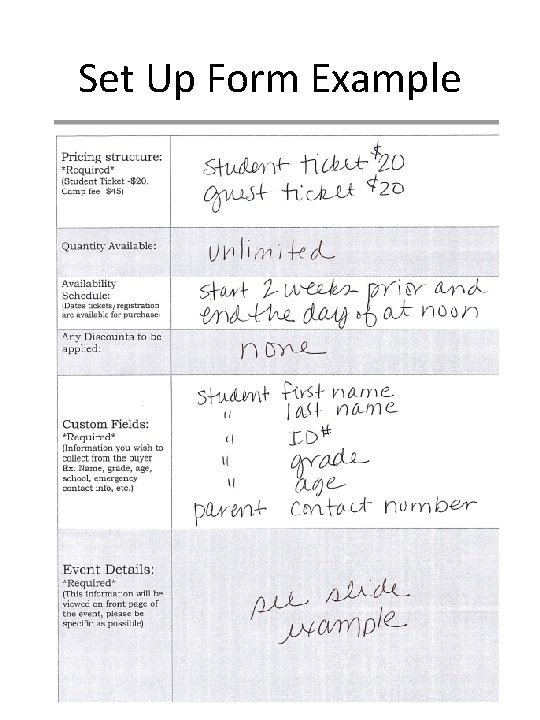 Set Up Form Example
Pricing structure:
*Required*
(Student Ticket -$20,
Camp fee $45)
student ticket $20
guest ticket $20
Quantity Available:
unlimited
Availability
Schedule:
(Dates tickets/registration
are available for purchase)
start 2 weeks prior and
end the day of at noon
Any Discounts to be
applied:
none
Custom Fields:
*Required*
(Information you wish to
collect from the buyer
Ex. Name, grade, age,
school, emergency
contact info, etc.)
student first name
" last name
" ID#
" grade
" age
parent contact number
Event Details:
*Required*
(This information will be
viewed on front page of
the event, please be
specific as possible)
see slide
example